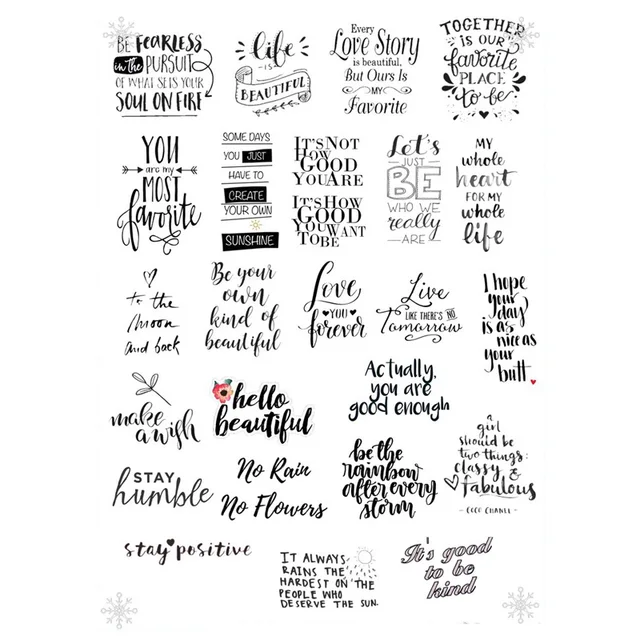 BE FEARLESS
in the PURSUIT
OF WHAT SETS YOUR
SOUL ON FIRE
life
IS
BEAUTIFUL
Every
Love Story
is beautiful,
But Ours Is
MY
Favorite
TOGETHER
IS OUR
favorite
PLACE
to be
YOU
are my
MOST
favorite
SOME DAYS
YOU JUST
HAVE TO
CREATE
YOUR OWN
SUNSHINE
IT'S NOT
HOW
GOOD
YOU ARE
IT'S HOW
GOOD
YOU WANT
TO BE
Let's
JUST
BE
WHO WE
really
ARE
MY
whole
heart
FOR MY
whole
life
to the
moon
and back
Be your
own
kind of
beautiful
Love
YOU
forever
Live
LIKE THERE'S NO
Tomorrow
I hope
your
day
is as
nice as
your
butt.
make
a wish
hello
beautiful
Actually,
you are
good enough
STAY
humble
No Rain
No Flowers
be the
rainbow
after every
storm
a
girl
should be
two things:
classy &
fabulous
- COCO CHANEL -
stay positive
IT ALWAYS
RAINS THE
HARDEST ON THE
PEOPLE WHO
DESERVE THE SUN.
It's good
to be
kind